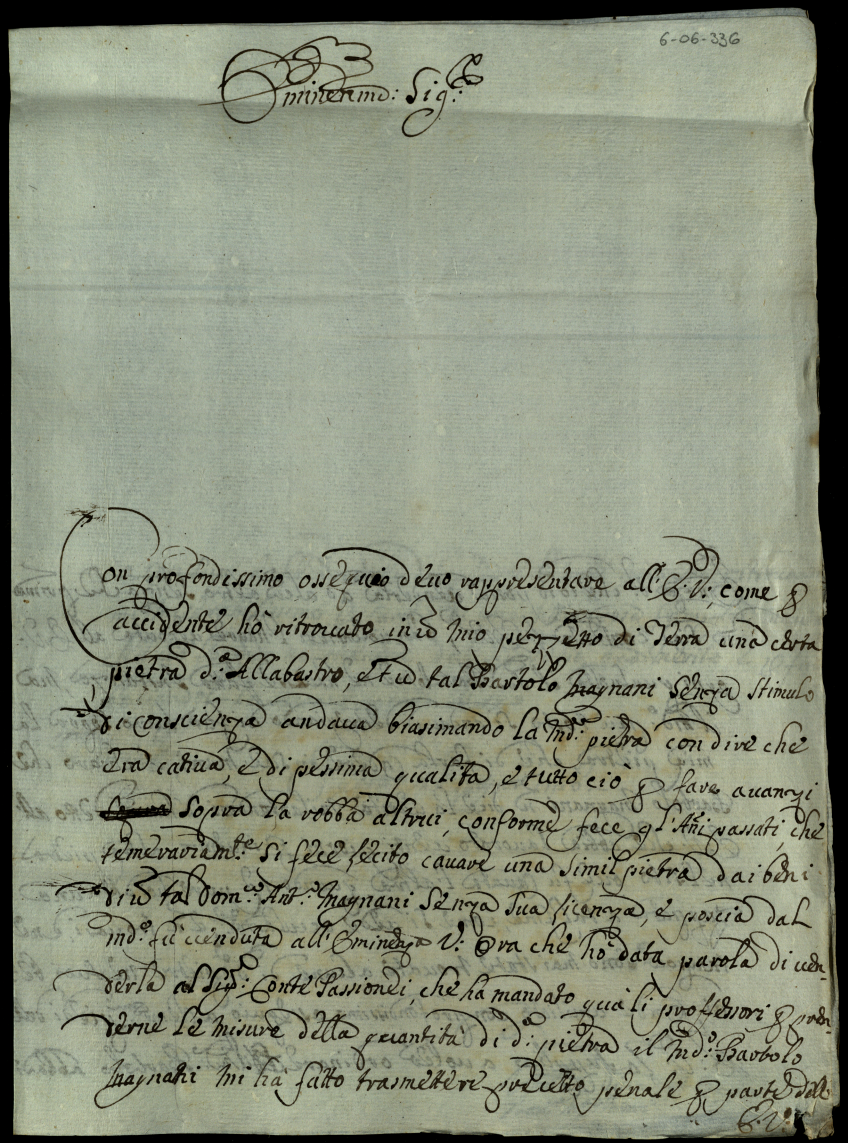 6-06-336
Eminentmo: Sig.re
Con profondissimo ossequio deuo rappresentare all'E: V:, come p
accidente hò ritrouato in un mio pezzetto di Terra una certa
pietra d.a Allabastro, et un tal Bartolo Magnani senza stimulo
di conscienza andaua biasimando la md.a pietra con dire che
era catiua, e di pessima qualità, e tutto ciò p fare auanzi
sopra la robba altrui, conforme fece gl'Ani passati, che
temerariam.te si fece lecito cauare una simil pietra dai beni
di un tal Dom.co Ant.o Magnani senza sua licenza, e poscia dal
md.o fù uenduta all'Eminenza V: Ora che hò data parola di uen-
derla al Sig.r Conte Passionei, che ha mandato quà li proffessori p pren-
derne le misure della quantità di d.a pietra il md.o Bartolo
Magnani mi hà fatto trasmettere precetto penale p parte dell'
E: V: